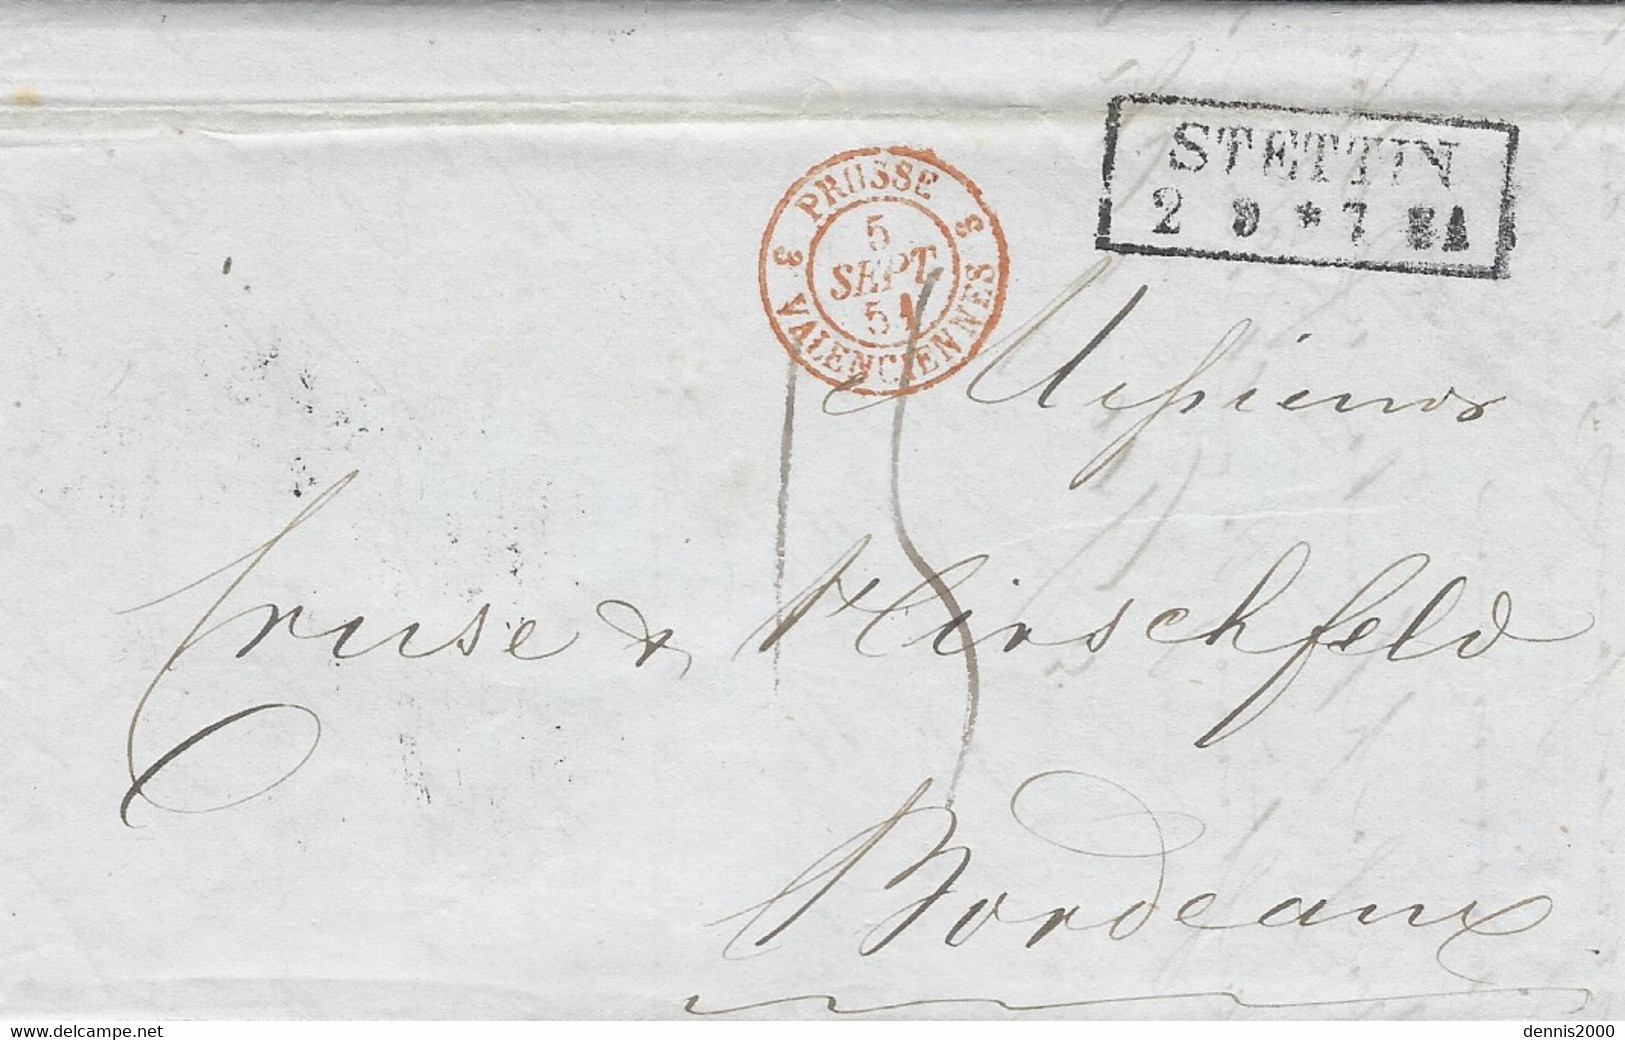 STETTIN
2 9 * 7
3 PRUSSE 3
5
SEPT
51
VALENCIENNES
15
Messieurs
Cruse & Hirschfeld
Bordeaux
www.delcampe.net
dennis2000